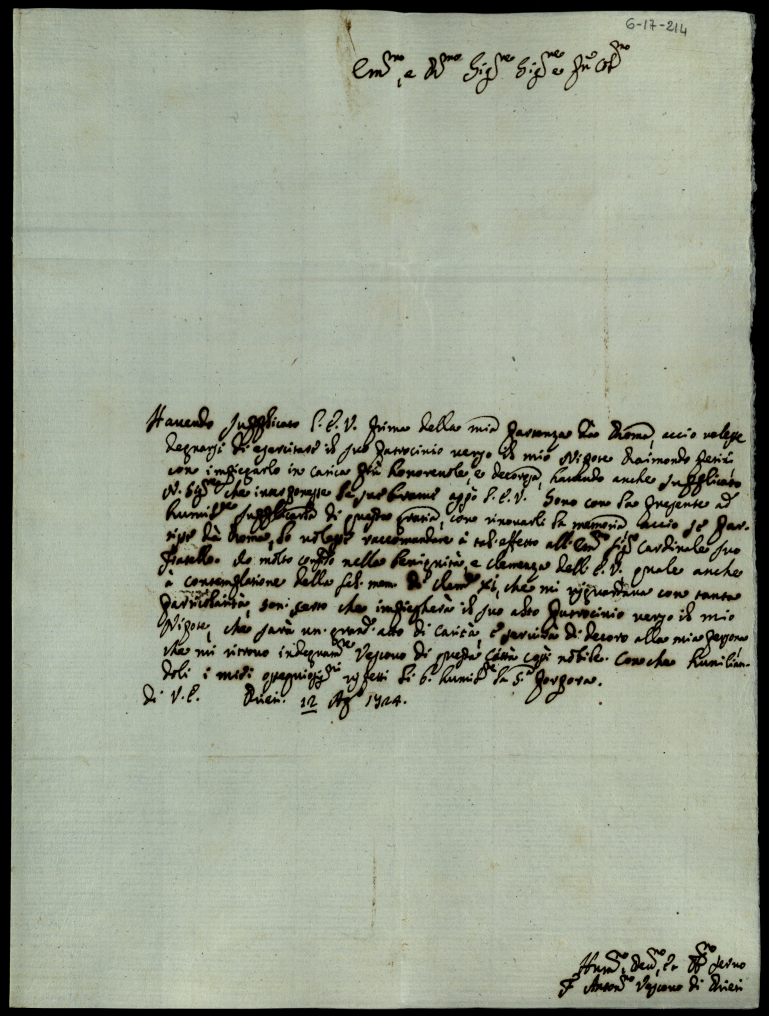 6-17-214
Em.mo, e R.mo Sig.re Sig.re e P.ne Col.mo
Havendo supplicato l'E.V. prima della mia partenza da Roma, accio volesse
degnarsi di esercitare il suo patrocinio verso il mio Nipote Raimondo
con impiegarlo in carica più honorevole, e decorosa, havendo anche supplicato
che interponesse le sue brame appo l'E.V. Sono con la presente ad
humil.te supplicarla di questa grazia, con rinovarli la memoria accio se par-
tisse da Roma, lo volesse raccomandare à tal effetto all'Em.mo Sig.r Cardinale suo
fratello. Io molto confido nella benignità, e clemenza dell'E.V. quale anche
à contemplazione della fel: mem: di Clem.e XI, che mi riguardava con tanta
parzialità, son certo che impiegherà il suo alto Patrocinio verso il mio
Nipote, che sarà un grand'atto di carità, e servirà di decoro alla mia persona
che mi ritrovo indegnam.te Vescovo di questa Città così nobile. Con che humilian-
doli i miei ossequiosis.mi rispetti li b. humil.te la S.a Porpora.
di V.E. 12 Ag.o 1724.
Hum.mo, Dev.mo, et Obl.mo Servo
F. Anton.o Vescovo di